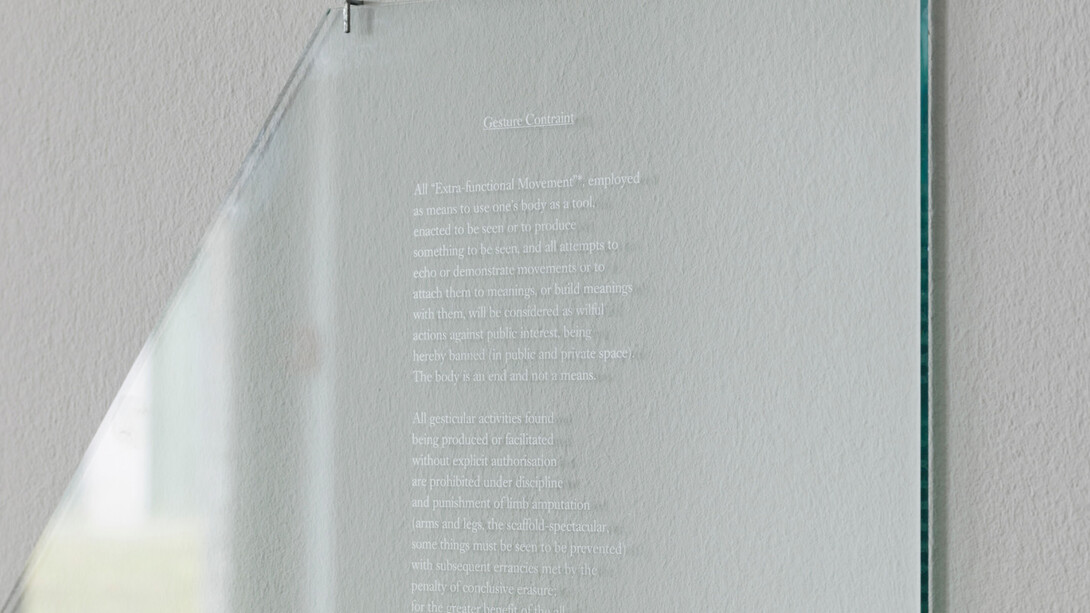 Gesture Contraint
All "Extra-functional Movement"*, employed
as means to use one's body as a tool,
enacted to be seen or to produce
something to be seen, and all attempts to
echo or demonstrate movements or to
attach them to meanings, or build meanings
with them, will be considered as wilful
actions against public interest, being
hereby banned (in public and private space).
The body is an end and not a means.
All gesticular activities found
being produced or facilitated
without explicit authorisation
are prohibited under discipline
and punishment of limb amputation
(arms and legs, the scaffold-spectacular,
some things must be seen to be prevented)
with subsequent errancies met by the
penalty of conclusive erasure,
for the greater benefit of the all